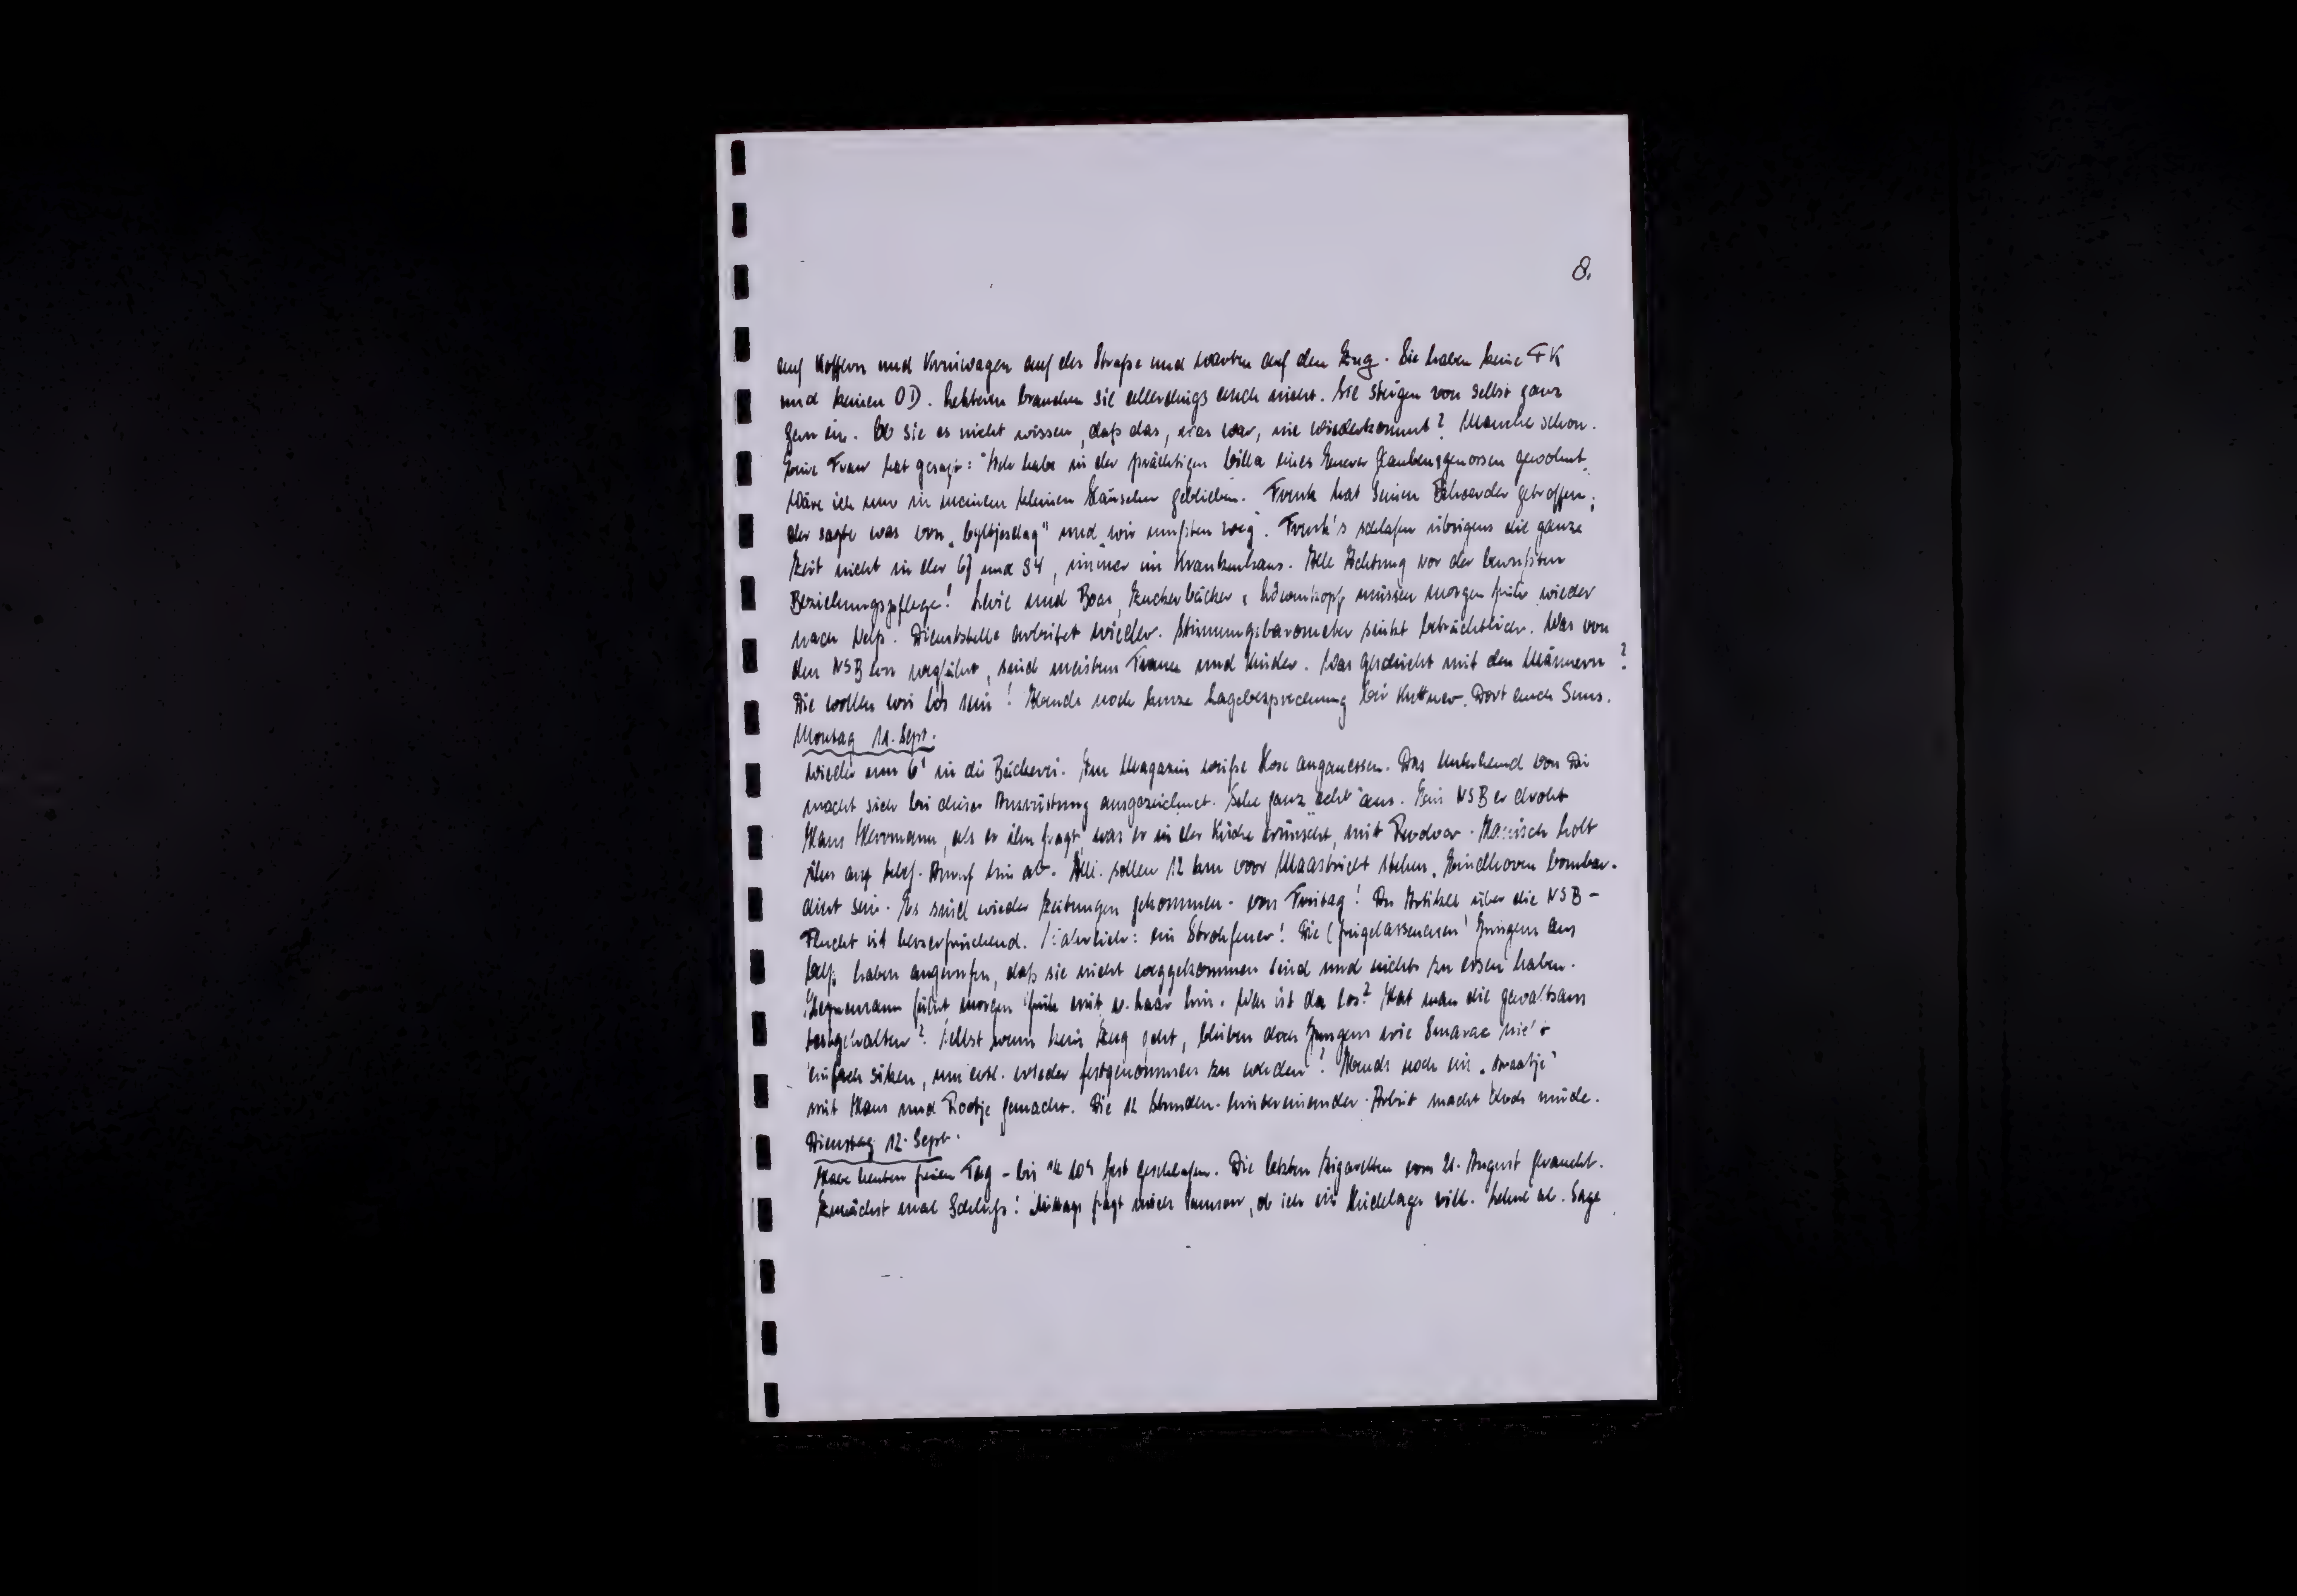 8.
auf Koffern und Kreuiwagen auf der Straße und warten auf den Zug. Sie haben keine FK
und keinen OD. Letzteren brauchen sie allerdings auch nicht. Sie steigen von selbst ganz
gern ein. Ob sie es nicht wissen, daß das, was war, nie wiederkommt? Manche schon.
Eine Frau hat gesagt: "Ich habe in der prächtigen Villa eines Euerer Glaubensgenossen gewohnt,
wäre ich nur in meinem kleinen Häuschen geblieben. Frank hat seinen getroffen,
der sagte was von „byltjesdag" und „wir mußten weg". Frank's schlafen übrigens die ganze
Zeit nicht in der 67 und 84, immer im Krankenhaus. Alle Achtung vor der bewußten
Beziehungspflege! Levie und Boas, Zuckerbäcker, müssen morgen früh wieder
nach Delf. Dienststelle arbeitet wieder. Stimmungsbarometer sinkt beträchtlich. Was von
den NSBern wegfährt, sind meistens Frauen und Kinder. Was geschieht mit den Männern?
Die wollen wir los sein! Abends noch kurze Lagebesprechung bei Kuttner. Dort auch Sims.
Montag 11. Sept.
Wieder um 6¹ in die Bäckerei. Im Magazin weiße Hose angemessen. Das Unterhemd von Di
macht sich bei dieser Ausrüstung ausgezeichnet. Sehe ganz "echt" aus. Ein NSBer droht
Hans Herrmann, als er ihn fragt, was er in der Küche wünscht, mit Revolver. holt
ihn auf telef. Anruf hin ab. All. sollen 12 km voor Maastricht stehen. Eindhoven bombar-
diert sein. Es sind wieder Zeitungen gekommen - vom Freitag! Der Artikel über die NSB-
Flucht ist herzerfrischend. : ein Strohfeuer! Die (freigelassenen) Jungens aus
haben angerufen, daß sie nicht weggekommen sind und nichts zu essen haben.
fährt morgen früh mit hin. Was ist da los? Hat man die gewaltsam
festgehalten? Selbst wenn kein Zug geht, bleiben doch Jungens wie nicht
einfach sitzen, um evtl. wieder festgenommen zu werden? Abends noch ein „straatje"
mit Hans und Rootje gemacht. Die 12 Stunden-hintereinander-Arbeit macht doch müde.
Dienstag 12. Sept.
Habe heute freien Tag - bis ½ 10h fest geschlafen. Die letzten Zigaretten vom 21. August geraucht.
Zunächst mal Schluß! Mittags fragt mich, ob ich ein will. Lehne ab. Sage